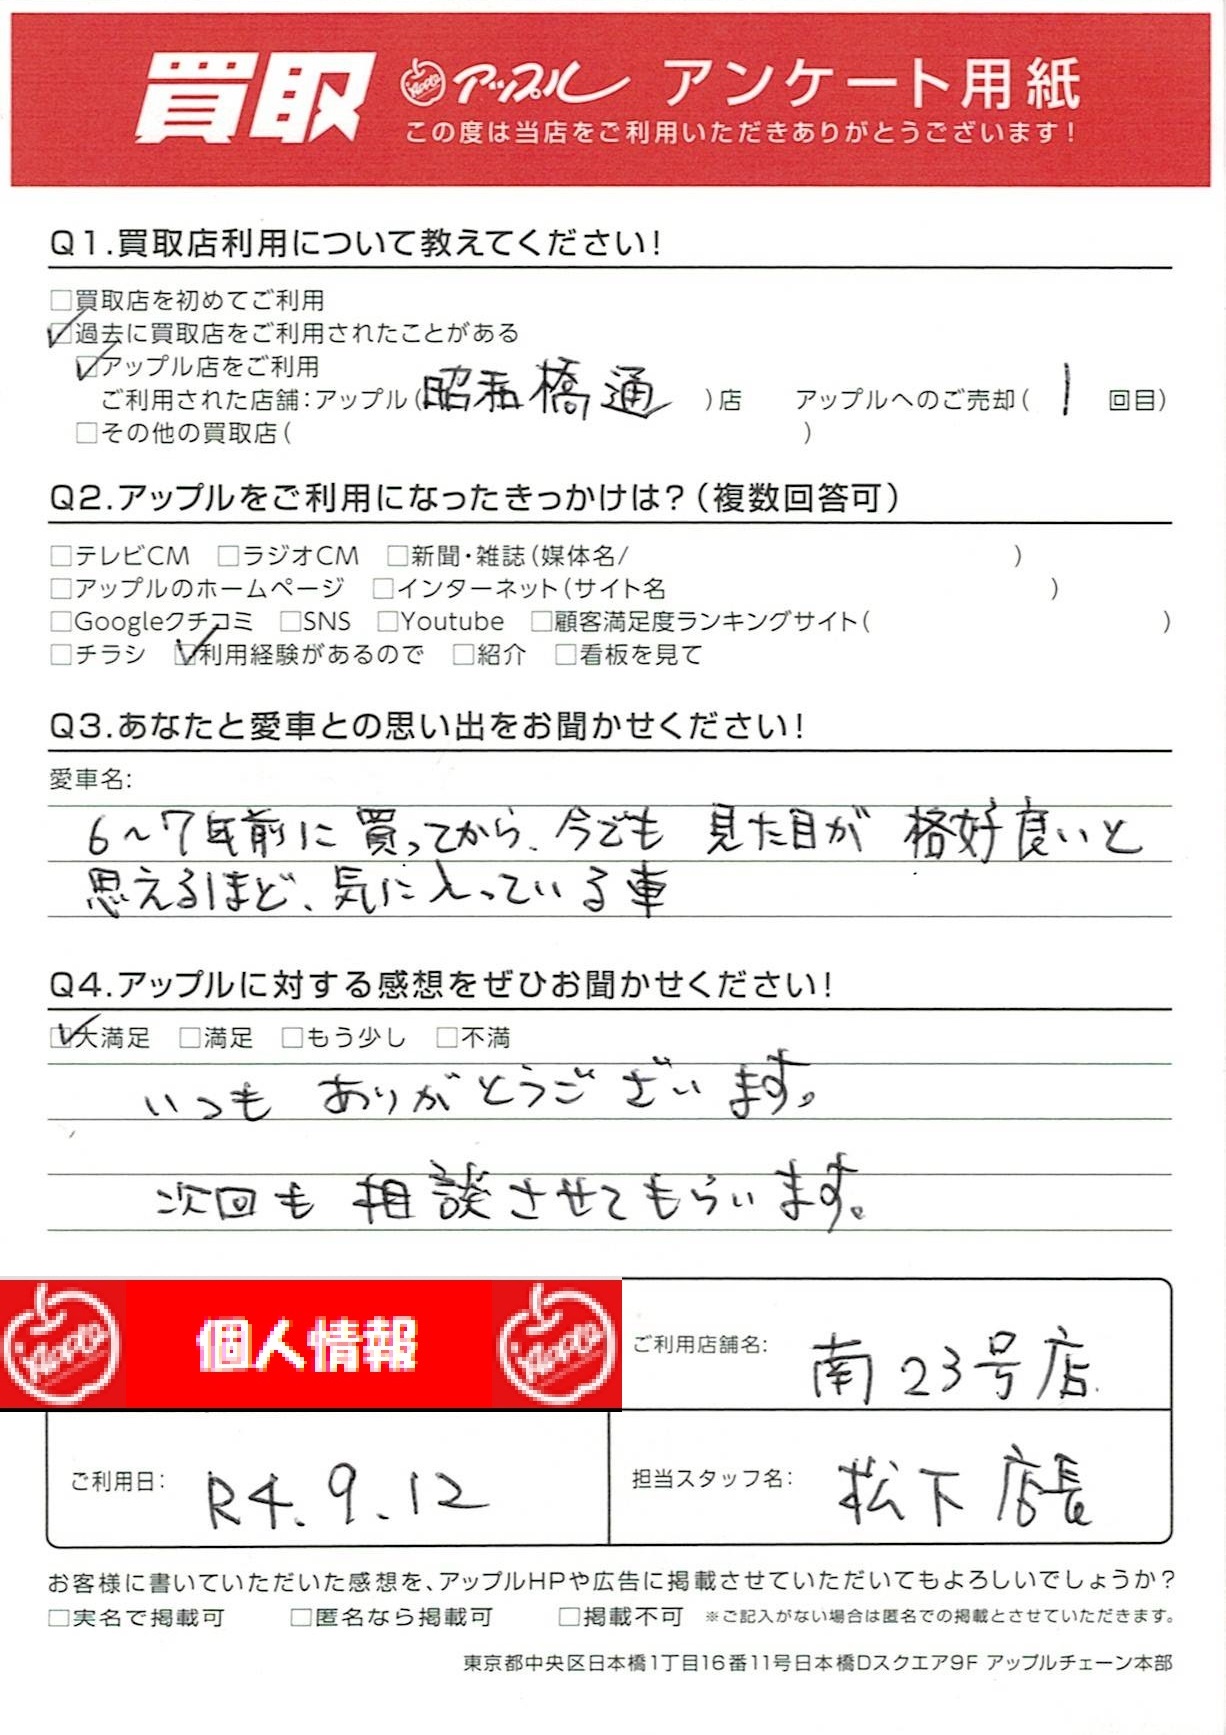 買取 アップル アンケート用紙
この度は当店をご利用いただきありがとうございます!
Q1.買取店利用について教えてください!
□買取店を初めてご利用
☑過去に買取店をご利用されたことがある
☑アップル店をご利用
ご利用された店舗:アップル(昭和橋通)店 アップルへのご売却( 1 回目)
□その他の買取店( )
Q2.アップルをご利用になったきっかけは?(複数回答可)
□テレビCM □ラジオCM □新聞・雑誌(媒体名/ )
□アップルのホームページ □インターネット(サイト名 )
□Googleクチコミ □SNS □Youtube □顧客満足度ランキングサイト( )
□チラシ ☑利用経験があるので □紹介 □看板を見て
Q3.あなたと愛車との思い出をお聞かせください!
愛車名:
6〜7年前に買ってから、今でも見た目が格好良いと
思えるほど、気に入っている車
Q4.アップルに対する感想をぜひお聞かせください!
☑大満足 □満足 □もう少し □不満
いつもありがとうございます。
次回も相談させてもらいます。
Apple 個人情報 Apple
ご利用店舗名: 南23号店
ご利用日: R4.9.12
担当スタッフ名: 松下店長
お客様に書いていただいた感想を、アップルHPや広告に掲載させていただいてもよろしいでしょうか?
□実名で掲載可 □匿名なら掲載可 □掲載不可 ※ご記入がない場合は匿名での掲載とさせていただきます。
東京都中央区日本橋1丁目16番11号日本橋Dスクエア9F アップルチェーン本部